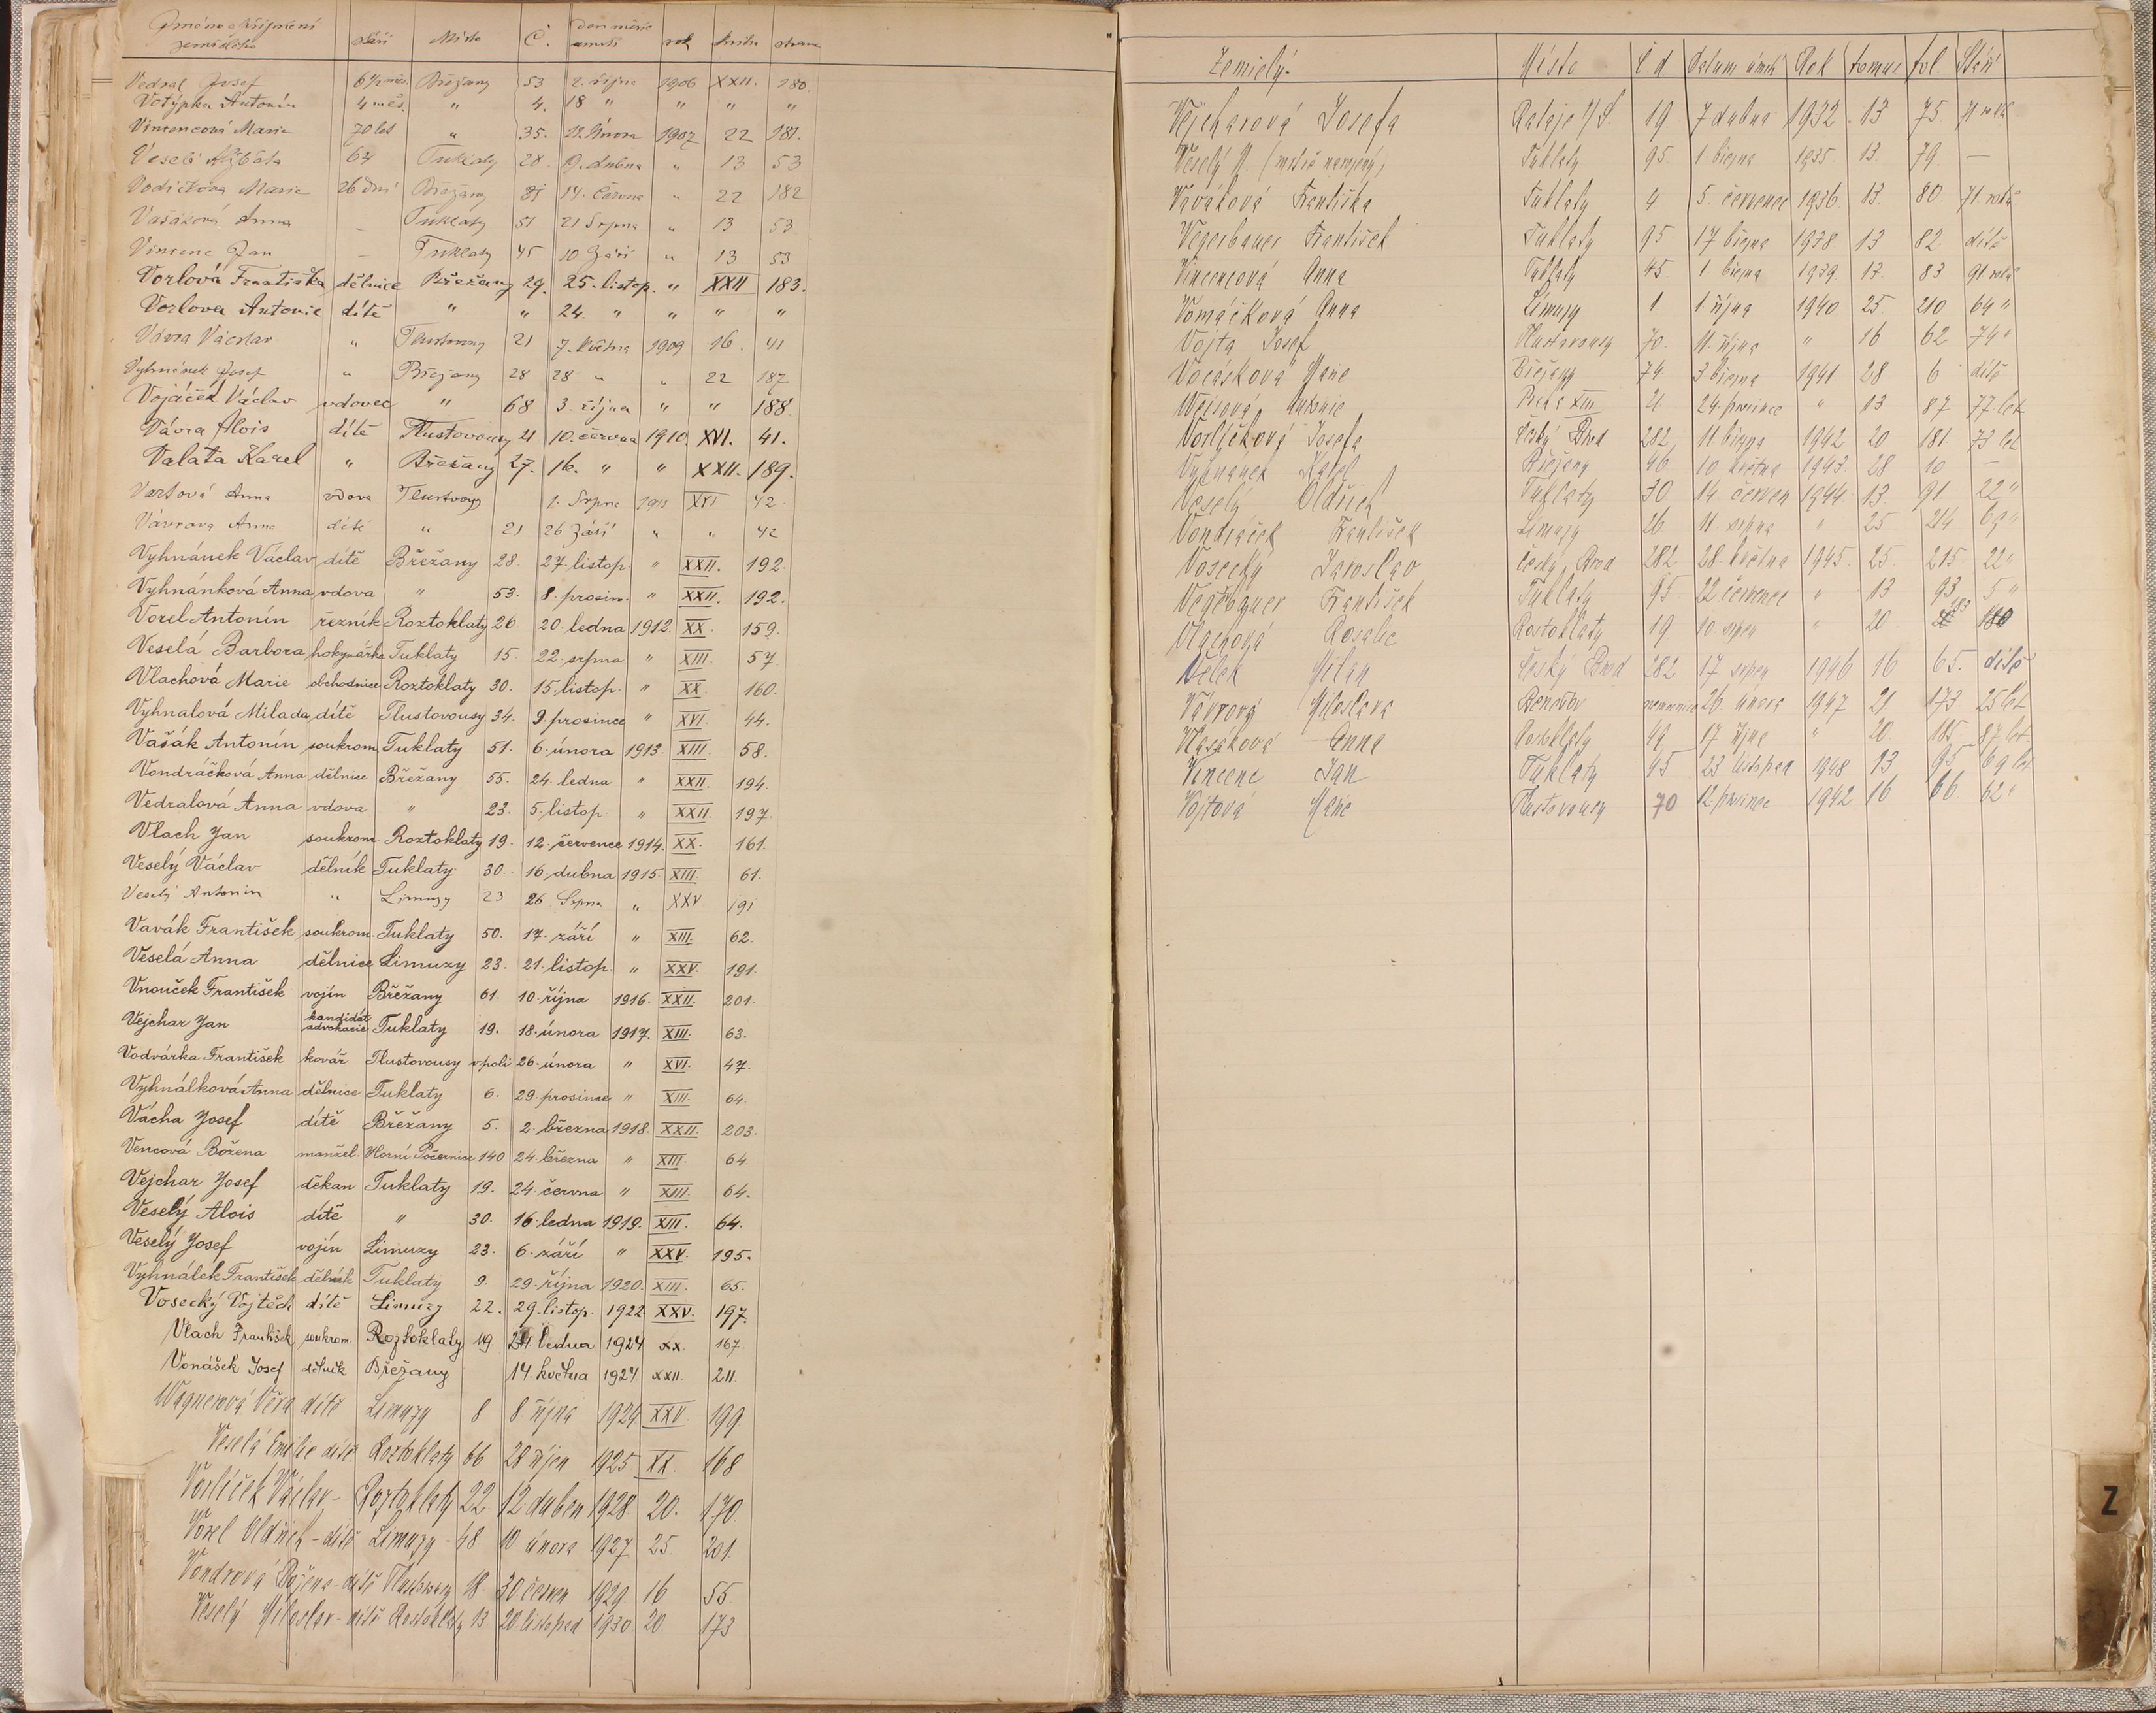 Jméno a příjmení zemřelého stáří Místo Č. den měsíc úmrtí rok kniha strana
Vedral Josef 6½ měs. Břežany 53 2. října 1906 XXII. 180.
Votýpka Antonín 4 měs. " 4. 18 " " " "
Vincencová Marie 70 let " 35. 12. února 1907 22 181.
Veselá Alžběta 64 Tuklaty 28. 9. dubna " 13 53
Vodičkova Marie 26 dní Břežany 14. června " 22 182
Vašáková Anna – Tuklaty 51 21 Srpna " 13 53
Vincenc Jan – Tuklaty 45 10 Září " 13 53
Vorlová Františka dělnice Břežany 29. 25. listop. " XXII 183.
Vorlova Antonie dítě " " 24. " " " "
Vávra Václav " Tlustovousy 21 7. května 1909 16. 41
Vyhnánek Josef " Břežany 28 28 " " 22 187
Vojáček Václav vdovec " 68 3. října " " 188.
Vávra Alois dítě Tlustovousy 21 10. června 1910. XVI. 41.
Valata Karel " Břežany 27. 16. " " XXII. 189.
Vartová Anna vdova Tlustovousy 1. Srpna 1911 XVI 42.
Vávrova Anna dítě " 21 26 Září " " 42
Vyhnánek Václav dítě Břežany 28. 27. listop. " XXII. 192.
Vyhnánková Anna vdova " 53. 8. prosin. " XXII. 192.
Vorel Antonín řezník Roztoklaty 26. 20. ledna 1912. XX. 159.
Veselá Barbora hokynářka Tuklaty 15. 22. srpna " XIII. 57.
Vlachová Marie obchodnice Roztoklaty 30. 15. listop. " XX. 160.
Vyhnalová Milada dítě Tlustovousy 34. 9. prosince " XVI. 44.
Vašák Antonín soukrom. Tuklaty 51. 6. února 1913. XIII. 58.
Vondráčková Anna dělnice Břežany 55. 24. ledna " XXII. 194.
Vedralová Anna vdova " 23. 5. listop. " XXII. 197.
Vlach Jan soukrom. Roztoklaty 19. 12. července 1914. XX. 161.
Veselý Václav dělník Tuklaty 30. 16. dubna 1915. XIII. 61.
Veselý Antonín " Limuzy 23 26 Srpna " XXV 191
Vavák František soukrom. Tuklaty 50. 17. září " XIII. 62.
Veselá Anna dělnice Limuzy 23. 21. listop. " XXV. 191.
Vnouček František vojín Břežany 61. 10. října 1916. XXII. 201.
Vejchar Jan kandidát advokacie Tuklaty 19. 18. února 1917. XIII. 63.
Vodvárka František kovář Tlustovousy v poli 26. února " XVI. 47.
Vyhnálková Anna dělnice Tuklaty 6. 29. prosince " XIII. 64.
Vácha Josef dítě Břežany 5. 2. března 1918. XXII. 203.
Vencová Božena manžel. Horní Počernice 140 24. března " XIII. 64.
Vejchar Josef děkan Tuklaty 19. 24. června " XIII. 64.
Veselý Alois dítě " 30. 16. ledna 1919. XIII. 64.
Veselý Josef vojín Limuzy 23. 6. září " XXV. 195.
Vyhnálek František dělník Tuklaty 9. 29. října 1920. XIII. 65.
Vosecký Vojtěch dítě Limuzy 22. 29. listop. 1922 XXV. 197.
Vlach František soukrom. Roztoklaty 19. 24. ledna 1924 XX. 167.
Vonášek Josef dělník Břežany 14. května 1924 XXII. 211.
Wagnerová Věra dítě Limuzy 8 8 října 1924 XXV. 199
Veselá Emilie dítě Roztoklaty 66 28 říjen 1925 XX. 168
Vorlíček Václav – Roztoklaty 22 12 duben 1928 20. 170
Vorel Oldřich – dítě Limuzy 48 10 února 1927 25. 201.
Vondrová Božena – dítě Tlustovousy 18 30 červen 1929 16 55
Veselý Miloslav – dítě Rostoklaty 13 20. listopad 1930 20 173
Zemřelý. Místo č d datum úmrtí Rok tomus fol. Stáří
Vejcharová Josefa Rataje 19. 7 dubna 1932. 13 75. 71 roků
Veselý N. (mrtvě narozený) Tuklaty 95. 1. března 1935. 13. 79. —
Vaváková Františka Tuklaty 4 5. července 1936 13. 80. 71 roků
Vegerbauer František Tuklaty 95 17 března 1938 13 82 dítě
Vincencová Anna Tuklaty 45. 1. března 1939. 13. 83 91 roků
Vomáčková Anna Limuzy 1 1 října 1940. 25. 210 64 "
Vojta Josef Tlustovousy 70. 11. října " 16 62 74 "
Vocásková Marie Břežany 74 3 března 1941. 28 6 dítě
Weisová Antonie Praha XIII 21 24. prosince " 13 87 77 let
Vorlíčková Josefa Český Brod 282 11 března 1942 20 181. 73 let
Vyhnánek Karel Břežany 46 10 května 1943 28 10 —
Veselý Oldřich Tuklaty 30. 14. červen 1944 13. 91 22 "
Vondráček František Limuzy 26 11 srpna " 25 214 69 "
Vosecky Jaroslav Český Brod 282. 28 května 1945. 25. 215. 22 "
Vegerbauer František Tuklaty 95 22 července " 13 93 5 "
Vlachová Rosalie Rostoklaty 19. 10. srpen " 20 183
Velek Milan Český Brod 282 17 srpen 1946. 16 65. dítě
Vávrová Miloslava Benešov nemocnice 26. února 1947 21 173. 25 let
Vlasáková Anna Rostoklaty 49 17 října " 20. 185 87 let
Vincenc Jan Tuklaty 45 23 listopad 1948 13 95 69 let
Vojtová Marie Tlustovousy 70 12 prosince 1942 16 66 62 "
Z